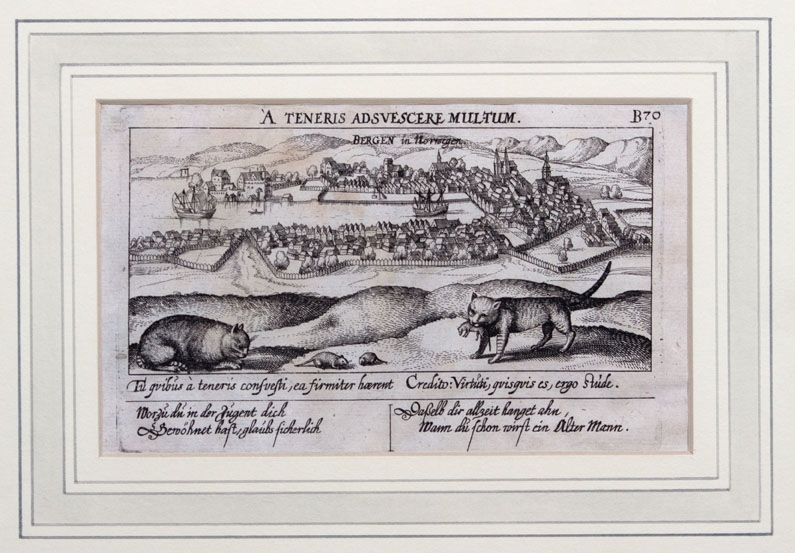 A TENERIS ADSVESCERE MULTUM.
B70
BERGEN in Norwegen.
Tu quibus a teneris consvesti, ea firmiter hærent Credito: Virtuti, quisquis es, ergo stude.
Worzu du in der Jugent dich
Gewöhnet hast, glaubs sicherlich
Daßelb dir allzeit hanget ahn,
Wann du schon wirst ein Alter Mann.